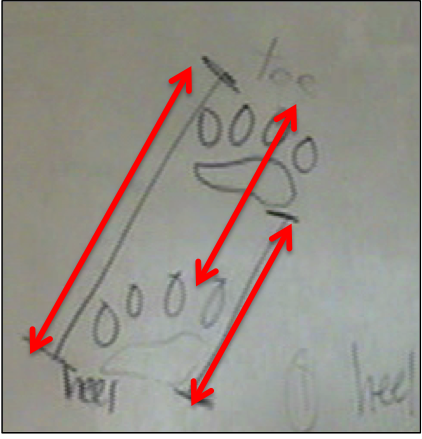 toe
heel
heel